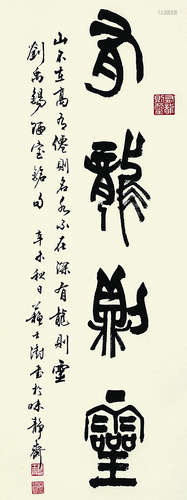 有龍則靈
山不在高有僊則名水不在深有龍則靈
劉禹錫陋室銘句 辛未秋日蘇士澍書於味靜齋